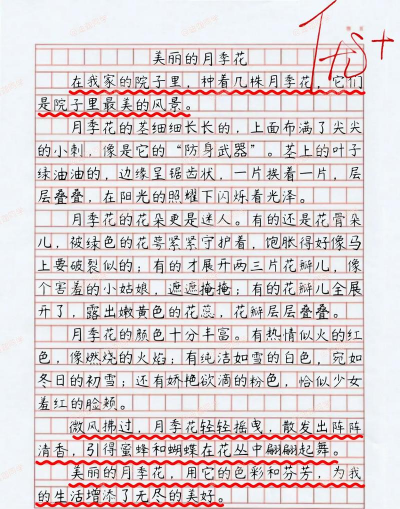 美丽的月季花
在我家的院子里，种着几株月季花，它们
是院子里最美的风景。
月季花的茎细细长长的，上面布满了尖尖
的小刺，像是它的“防身武器”。茎上的叶子
绿油油的，边缘呈锯齿状，一片挨着一片，层
层叠叠，在阳光的照耀下闪烁着光泽。
月季花的花朵更是迷人。有的还是花骨朵
儿，被绿色的花萼紧紧守护着，饱胀得好像马
上要破裂似的；有的才展开两三片花瓣儿，像
个害羞的小姑娘，遮遮掩掩；有的花瓣儿全展
开了，露出嫩黄色的花蕊，花瓣层层叠叠。
月季花的颜色十分丰富。有热情似火的红
色，像燃烧的火焰；有纯洁如雪的白色，宛如
冬日的初雪；还有娇艳欲滴的粉色，恰似少女
羞红的脸颊。
微风拂过，月季花轻轻摇曳，散发出阵阵
清香，引得蜜蜂和蝴蝶在花丛中翩翩起舞。
美丽的月季花，用它的色彩和芬芳，为我
的生活增添了无尽的美好。